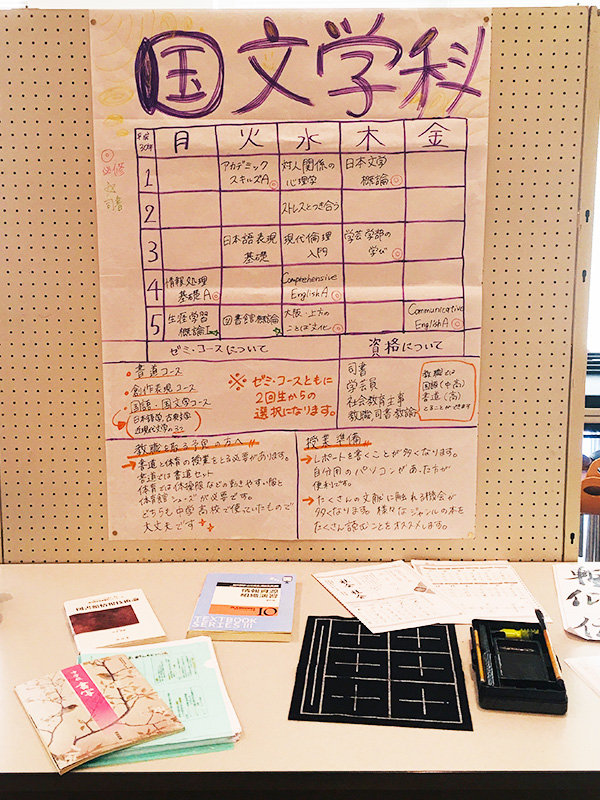 国文学科
平成30年 月 火 水 木 金
◎必修
司書
1 アカデミックスキルズA◎ 対人関係の心理学 日本文学概論◎
2 ストレスとつき合う
3 日本語表現基礎 現代倫理入門 学芸学部の学び◎
4 情報処理基礎A◎ Comprehensive English A◎
5 生涯学習概論I 図書館概論☆ 大阪・上方のことばと文化◎ Communicative English A◎
ゼミ・コースについて
・書道コース
・創作表現コース
・国語・国文学コース
日本語学, 古典文学
近現代文学の3つ
※ ゼミ・コースともに
2回生からの
選択になります。
資格について
司書
学芸員
社会教育主事
教職、司書教諭
教職では
国語(中・高)
書道(高)
をとることができます
教職を取る予定の方へ
→書道と体育の授業をとる必要があります。
書道では書道セット
体育では体操服などの動きやすい服と
体育館シューズが必要です。
どちらも中学高校で使っていたもので
大丈夫です
授業準備
→レポートを書くことが多くなります。
自分用のパソコンがあった方が
便利です。
→たくさんの文献に触れる機会が
多くなります。様々なジャンルの本を
たくさん読むことをオススメします。
図書館情報技術論
情報資源組織演習
TEXTBOOK
SERIES III